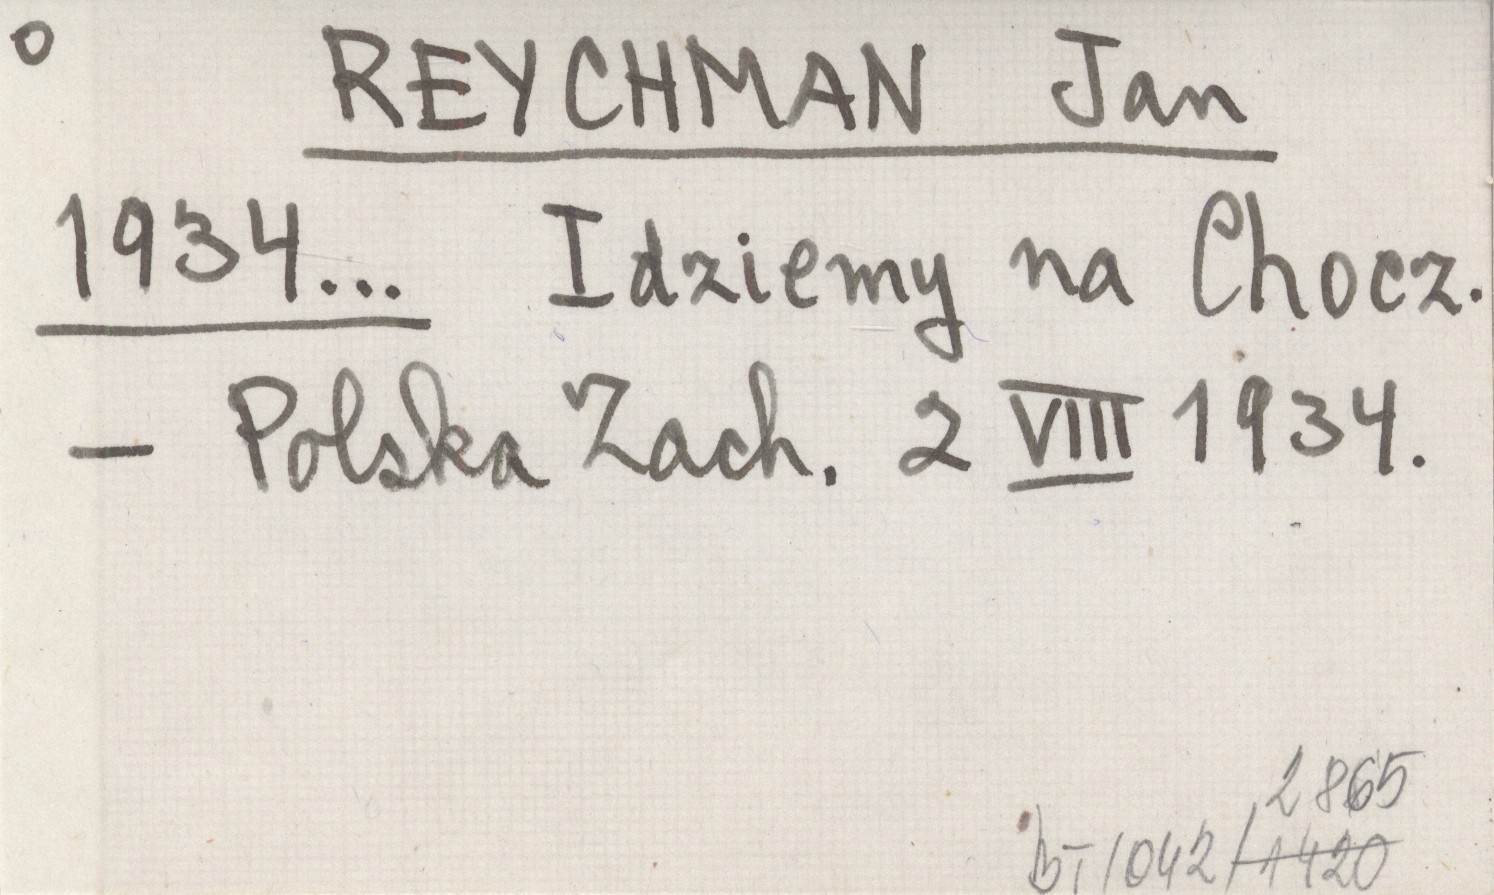 o
REYCHMAN Jan
1934... Idziemy na Chocz.
— Polska Zach. 2 VIII 1934.
2865
bT/1042/1420